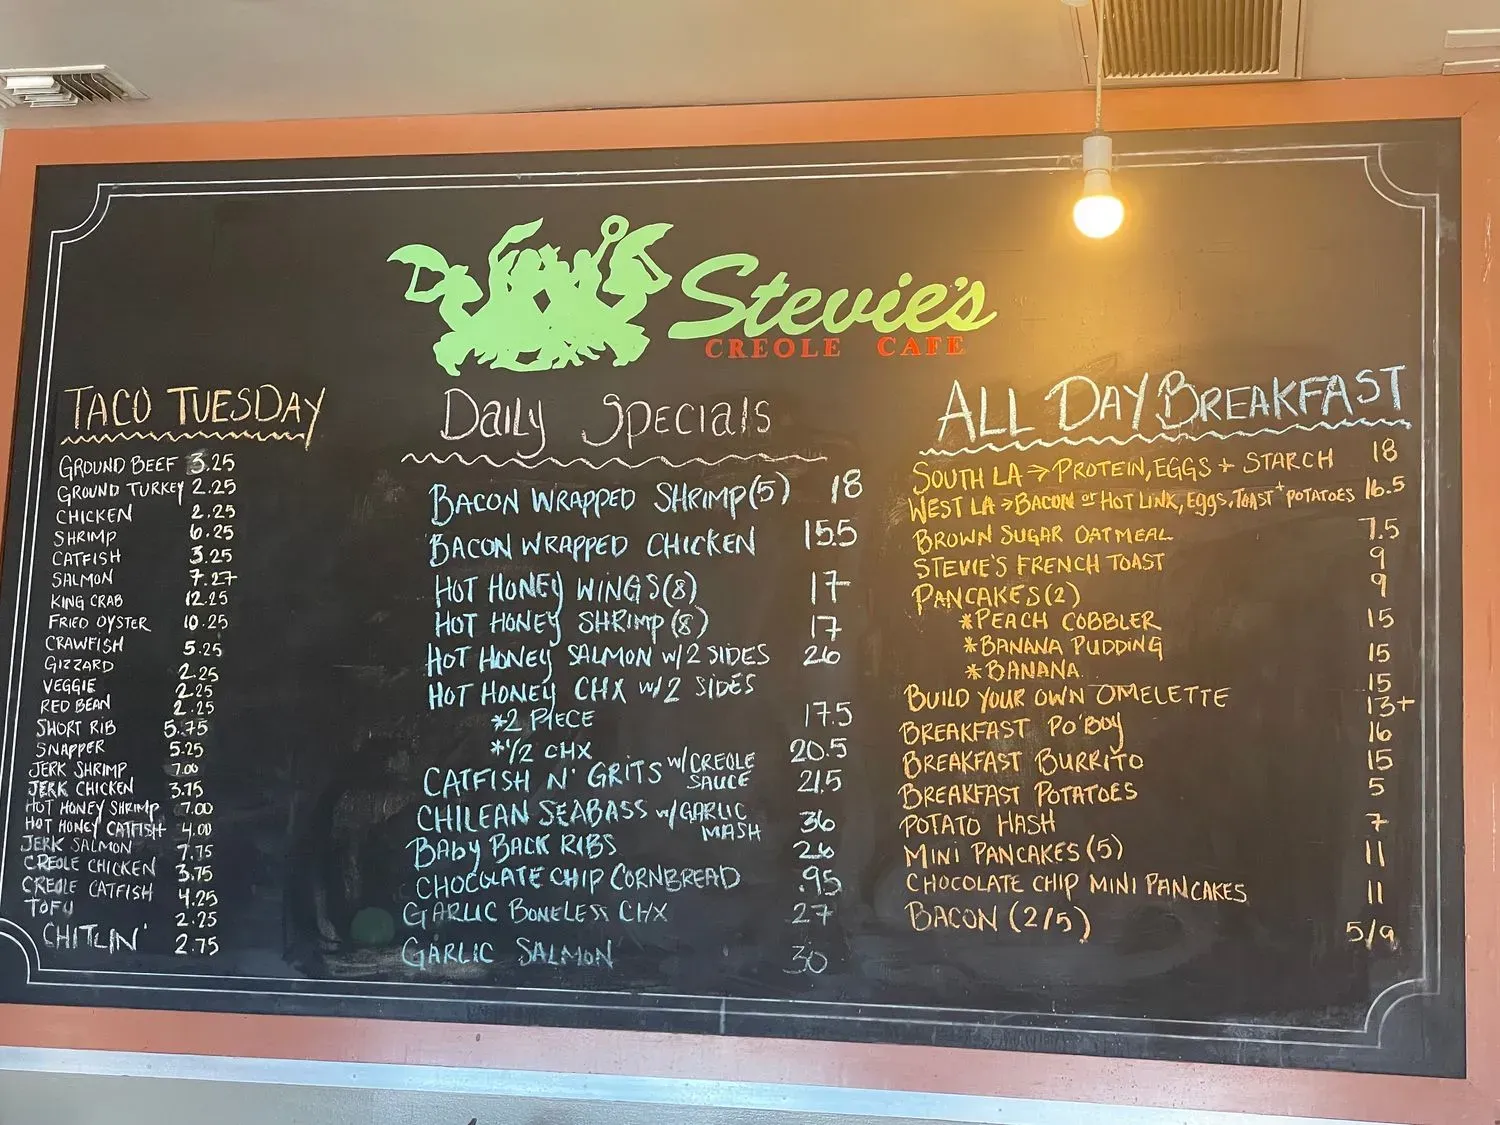 Stevie's
CREOLE CAFE
TACO TUESDAY
GROUND BEEF 3.25
GROUND TURKEY 2.25
CHICKEN 2.25
SHRIMP 6.25
CATFISH 3.25
SALMON 7.27
KING CRAB 12.25
FRIED OYSTER 10.25
CRAWFISH 5.25
GIZZARD 2.25
VEGGIE 2.25
RED BEAN 2.25
SHORT RIB 5.75
SNAPPER 5.25
JERK SHRIMP 7.00
JERK CHICKEN 3.75
HOT HONEY SHRIMP 7.00
HOT HONEY CATFISH 4.00
JERK SALMON 7.75
CREOLE CHICKEN 3.75
CREOLE CATFISH 4.25
TOFU 2.25
CHITLIN' 2.75
Daily Specials
BACON WRAPPED SHRIMP (5) 18
BACON WRAPPED CHICKEN 15.5
HOT HONEY WINGS (8) 17
HOT HONEY SHRIMP (8) 17
HOT HONEY SALMON w/2 SIDES 26
HOT HONEY CHX w/2 SIDES
*2 PIECE 17.5
*1/2 CHX 20.5
CATFISH N' GRITS w/CREOLE SAUCE 21.5
CHILEAN SEABASS w/GARLIC MASH 36
BABY BACK RIBS 26
CHOCOLATE CHIP CORNBREAD .95
GARLIC BONELESS CHX 27
GARLIC SALMON 30
ALL DAY BREAKFAST
SOUTH LA → PROTEIN, EGGS + STARCH 18
WEST LA → BACON or HOT LINK, Eggs, TOAST + POTATOES 16.5
BROWN SUGAR OATMEAL 7.5
STEVIE'S FRENCH TOAST 9
PANCAKES (2) 9
*PEACH COBBLER 15
*BANANA PUDDING 15
*BANANA 15
BUILD YOUR OWN OMELETTE 13+
BREAKFAST PO'BOY 16
BREAKFAST BURRITO 15
BREAKFAST POTATOES 5
POTATO HASH 7
MINI PANCAKES (5) 11
CHOCOLATE CHIP MINI PANCAKES 11
BACON (2/5) 5/9